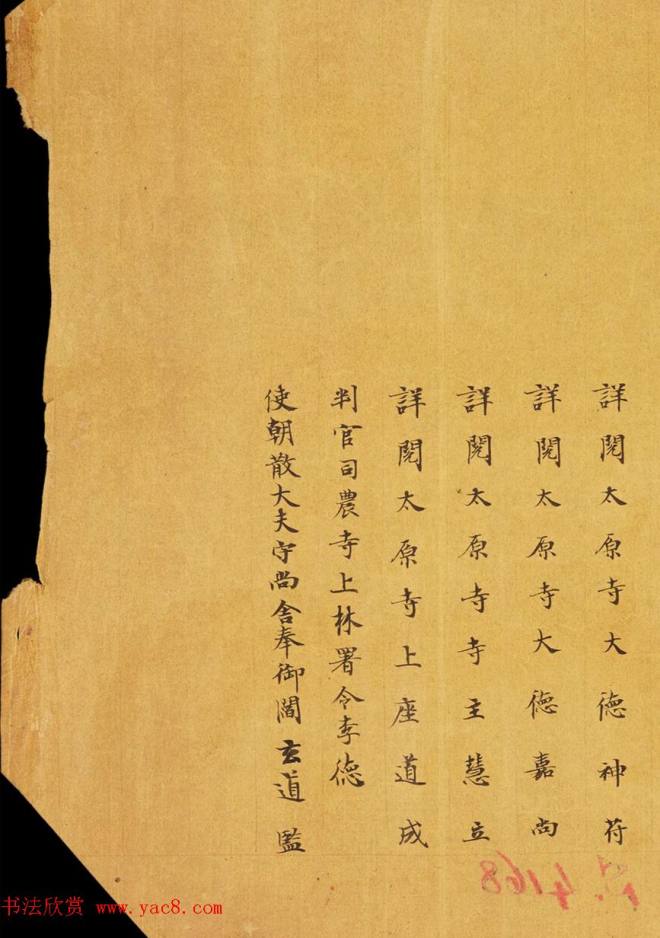 詳閱太原寺大德神苻
詳閱太原寺大德嘉尚
詳閱太原寺寺主慧立
詳閱太原寺上座道成
判官司農寺上林署令李德
使朝散大夫守尚舍奉御閻玄道監
S. 4168
书法欣赏 www.yac8.com